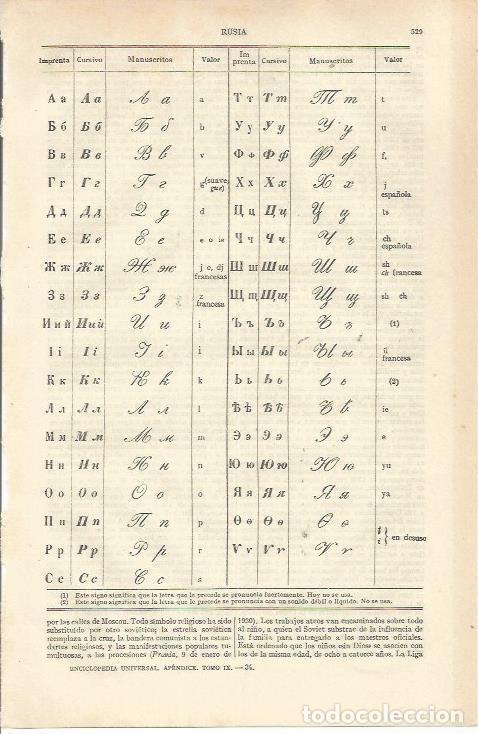 RUSIA 529
Imprenta Cursivo Manuscritos Valor Im prenta Cursivo Manuscritos Valor
А а А а А а a Т т Т т Т т t
Б б Б б Б б b У у У у У у u
В в В в В в v Ф ф Ф ф Ф ф f,
Г г Г г Г г g (suave gue) Х х Х х Х х j española
Д д Д д Д д d Ц ц Ц ц Ц ц ts
Е е Е е Е е e o ie Ч ч Ч ч Ч ч ch española
Ж ж Ж ж Ж ж j o, dj francesas Ш ш Ш ш Ш ш sh ch francesa
З з З з З з z francesa Щ щ Щ щ Щ щ sh ch
И ий И ий И и i Ъ ъ Ъ ъ Ъ ъ (1)
І і І і І і i Ы ы Ы ы Ы ы ü francesa
К к К к К к k Ь ь Ь ь Ь ь (2)
Л л Л л Л л l Ѣ ѣ Ѣ ѣ Ѣ ѣ ie
М м М м М м m Э э Э э Э э e
Н н Н н Н н n Ю ю Ю ю Ю ю yu
О о О о О о o Я я Я я Я я ya
П п П п П п p Ѳ ѳ Ѳ ѳ Ѳ ѳ
Р р Р р Р р r Ѵ ѵ Ѵ ѵ Ѵ ѵ i } en desuso
С с С с С с s
(1) Este signo significa que la letra que le precede se pronuncia fuertemente. Hoy no se usa.
(2) Este signo significa que la letra que le precede se pronuncia con un sonido débil o líquido. No se usa.
por las calles de Moscou. Todo símbolo religioso ha sido
substituído por otro soviético; la estrella soviética
reemplaza a la cruz, la bandera comunista a los estan-
dartes religiosos, y las manifestaciones populares tu-
multuosas, a las procesiones (Pravda, 9 de enero de
1930). Los trabajos ateos van encaminados sobre todo
al niño, a quien el Soviet substrae de la influencia de
la familia para entregarlo a los maestros oficiales.
Está ordenado que los niños «sin Dios» se asocien con
los de la misma edad, de ocho a catorce años. La Liga
ENCICLOPEDIA UNIVERSAL. APÉNDICE. TOMO IX. — 34.
todocoleccion